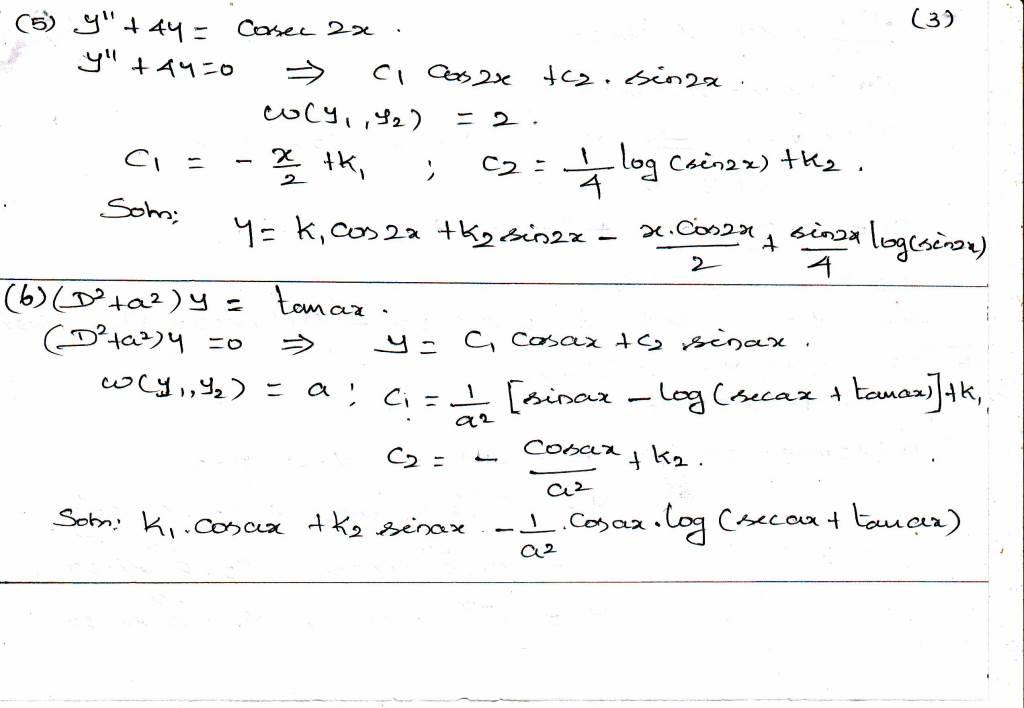 (3)
(5) y'' + 4y = Cosec 2x .
y'' + 4y = 0 ⇒ C1 Cos2x + C2 . sin2x .
w(y1, y2) = 2 .
C1 = - x/2 + k1 ; C2 = 1/4 log (sin2x) + k2 .
Soln: y = k1 cos2x + k2 sin2x - x.Cos2x/2 + sin2x/4 log(sin2x)
(6) (D²+a²) y = tanax .
(D²+a²) y = 0 ⇒ y = C1 cosax + C2 sinax .
w(y1, y2) = a ; C1 = 1/a² [sinax - log (secax + tanax)] + k1
C2 = - Cosax/a² + k2 .
Soln: k1 . cosax + k2 sinax - 1/a² . Cosax . log (secax + tanax)